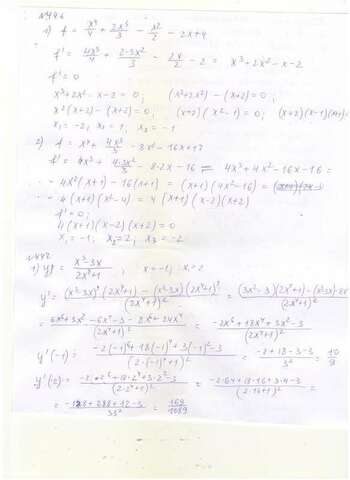 №446
1) f = x⁴/4 + 2x³/3 − x²/2 − 2x+4
f' = 4x³/4 + 2·3x²/3 − 2x/2 − 2 = x³+2x²−x−2
f' = 0
x³+2x²−x−2=0; (x³+2x²)−(x+2)=0;
x²(x+2)−(x+2)=0; (x+2)(x²−1)=0; (x+2)(x−1)(x+1)
x₁=−2, x₂=1, x₃=−1
2) f = x⁴ + 4x³/3 − 8x² − 16x+12
f' = 4x³ + 4·3x²/3 − 8·2x − 16 = 4x³+4x²−16x−16 =
= 4x²(x+1) − 16(x+1) = (x+1)(4x²−16) =
= 4(x+1)(x²−4) = 4(x+1)(x−2)(x+2)
f'=0;
4(x+1)(x−2)(x+2)=0
x₁=−1; x₂=2; x₃=−2
1) y = x³−3x/2x⁴+1, x=−1;
y' = (x³−3x)'(2x⁴+1) − (x³−3x)(2x⁴+1)'/(2x⁴+1)² = (3x²−3)(2x⁴+1)
= 6x⁶+3x²−6x⁴−3−8x⁶+24x⁴/(2x⁴+1)² = −2x⁶+18x⁴+3x²−3/(2x⁴+1)²
y'(−1) =
y'(2) = = −2·64+18·16+3·4−3/(2·16+1)² =
= −128+288+12−3/33² = 169/1089